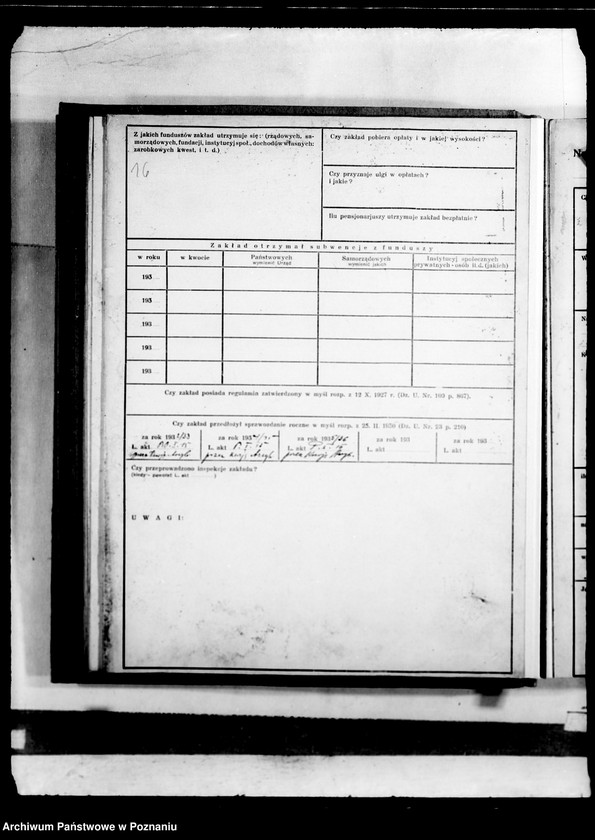 Z jakich funduszów zakład utrzymuje się: (rządowych, sa-
morządowych, fundacji, instytucyj społ., dochodów własnych:
zarobkowych kwest. i t. d.)
16
Czy zakład pobiera opłaty i w jakiej wysokości?
Czy przyznaje ulgi w opłatach?
i jakie?
Ilu pensjonarjuszy utrzymuje zakład bezpłatnie?
Zakład otrzymał subwencje z funduszy
w roku
w kwocie
Państwowych
wymienić Urząd
Samorządowych
wymienić jakich
Instytucyj społecznych
prywatnych - osób it d. (jakich)
193
193
193
193
193
Czy zakład posiada regulamin zatwierdzony w myśl rozp. z 12 X. 1927 r. (Dz. U. Nr.
Czy zakład przedłożył sprawozdanie roczne w myśl rozp. z
za rok 193
L. akt
za rok 193
L. akt
za rok 193
L. akt
za rok 193
L. akt
za rok 193
L. akt
Czy przeprowadzono inspekcje zakładu?
(kiedy - powołać L. akt )
UWAGI:
Archiwum Państwowe w Poznaniu